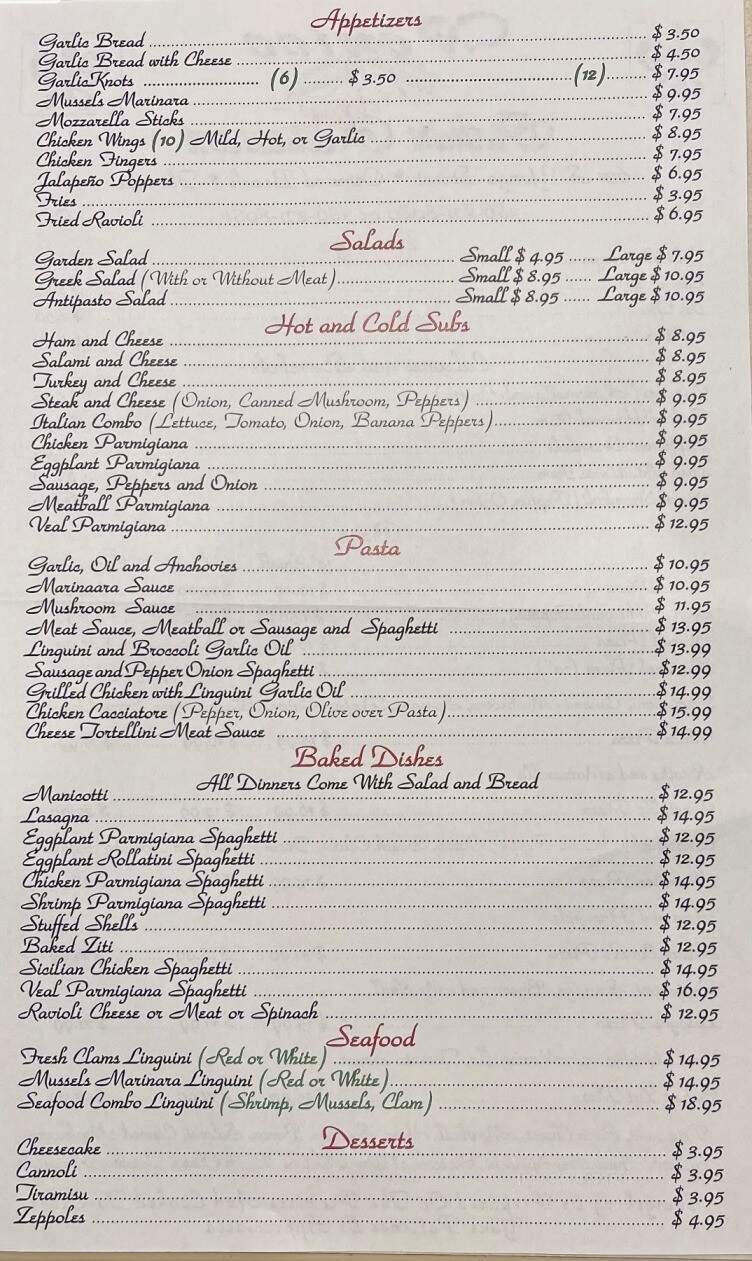 Appetizers
Garlic Bread $ 3.50
Garlic Bread with Cheese $ 4.50
Garlic Knots (6) $ 3.50 (12) $ 7.95
Mussels Marinara $ 9.95
Mozzarella Sticks $ 7.95
Chicken Wings (10) Mild, Hot, or Garlic $ 8.95
Chicken Fingers $ 7.95
Jalapeño Poppers $ 6.95
Fries $ 3.95
Fried Ravioli $ 6.95
Salads
Garden Salad Small $ 4.95 Large $ 7.95
Greek Salad (With or Without Meat) Small $ 8.95 Large $ 10.95
Antipasto Salad Small $ 8.95 Large $ 10.95
Hot and Cold Subs
Ham and Cheese $ 8.95
Salami and Cheese $ 8.95
Turkey and Cheese $ 8.95
Steak and Cheese (Onion, Canned Mushroom, Peppers) $ 9.95
Italian Combo (Lettuce, Tomato, Onion, Banana Peppers) $ 9.95
Chicken Parmigiana $ 9.95
Eggplant Parmigiana $ 9.95
Sausage, Peppers and Onion $ 9.95
Meatball Parmigiana $ 9.95
Veal Parmigiana $ 12.95
Pasta
Garlic, Oil and Anchovies $ 10.95
Marinaara Sauce $ 10.95
Mushroom Sauce $ 11.95
Meat Sauce, Meatball or Sausage and Spaghetti $ 13.95
Linguini and Broccoli Garlic Oil $ 13.99
Sausage and Pepper Onion Spaghetti $12.99
Grilled Chicken with Linguini Garlic Oil $14.99
Chicken Cacciatore (Pepper, Onion, Olive over Pasta) $15.99
Cheese Tortellini Meat Sauce $ 14.99
Baked Dishes
All Dinners Come With Salad and Bread
Manicotti $ 12.95
Lasagna $ 14.95
Eggplant Parmigiana Spaghetti $ 12.95
Eggplant Rollatini Spaghetti $ 12.95
Chicken Parmigiana Spaghetti $ 14.95
Shrimp Parmigiana Spaghetti $ 14.95
Stuffed Shells $ 12.95
Baked Ziti $ 12.95
Sicilian Chicken Spaghetti $ 14.95
Veal Parmigiana Spaghetti $ 16.95
Ravioli Cheese or Meat or Spinach $ 12.95
Seafood
Fresh Clams Linguini (Red or White) $ 14.95
Mussels Marinara Linguini (Red or White) $ 14.95
Seafood Combo Linguini (Shrimp, Mussels, Clam) $ 18.95
Desserts
Cheesecake $ 3.95
Cannoli $ 3.95
Tiramisu $ 3.95
Zeppoles $ 4.95